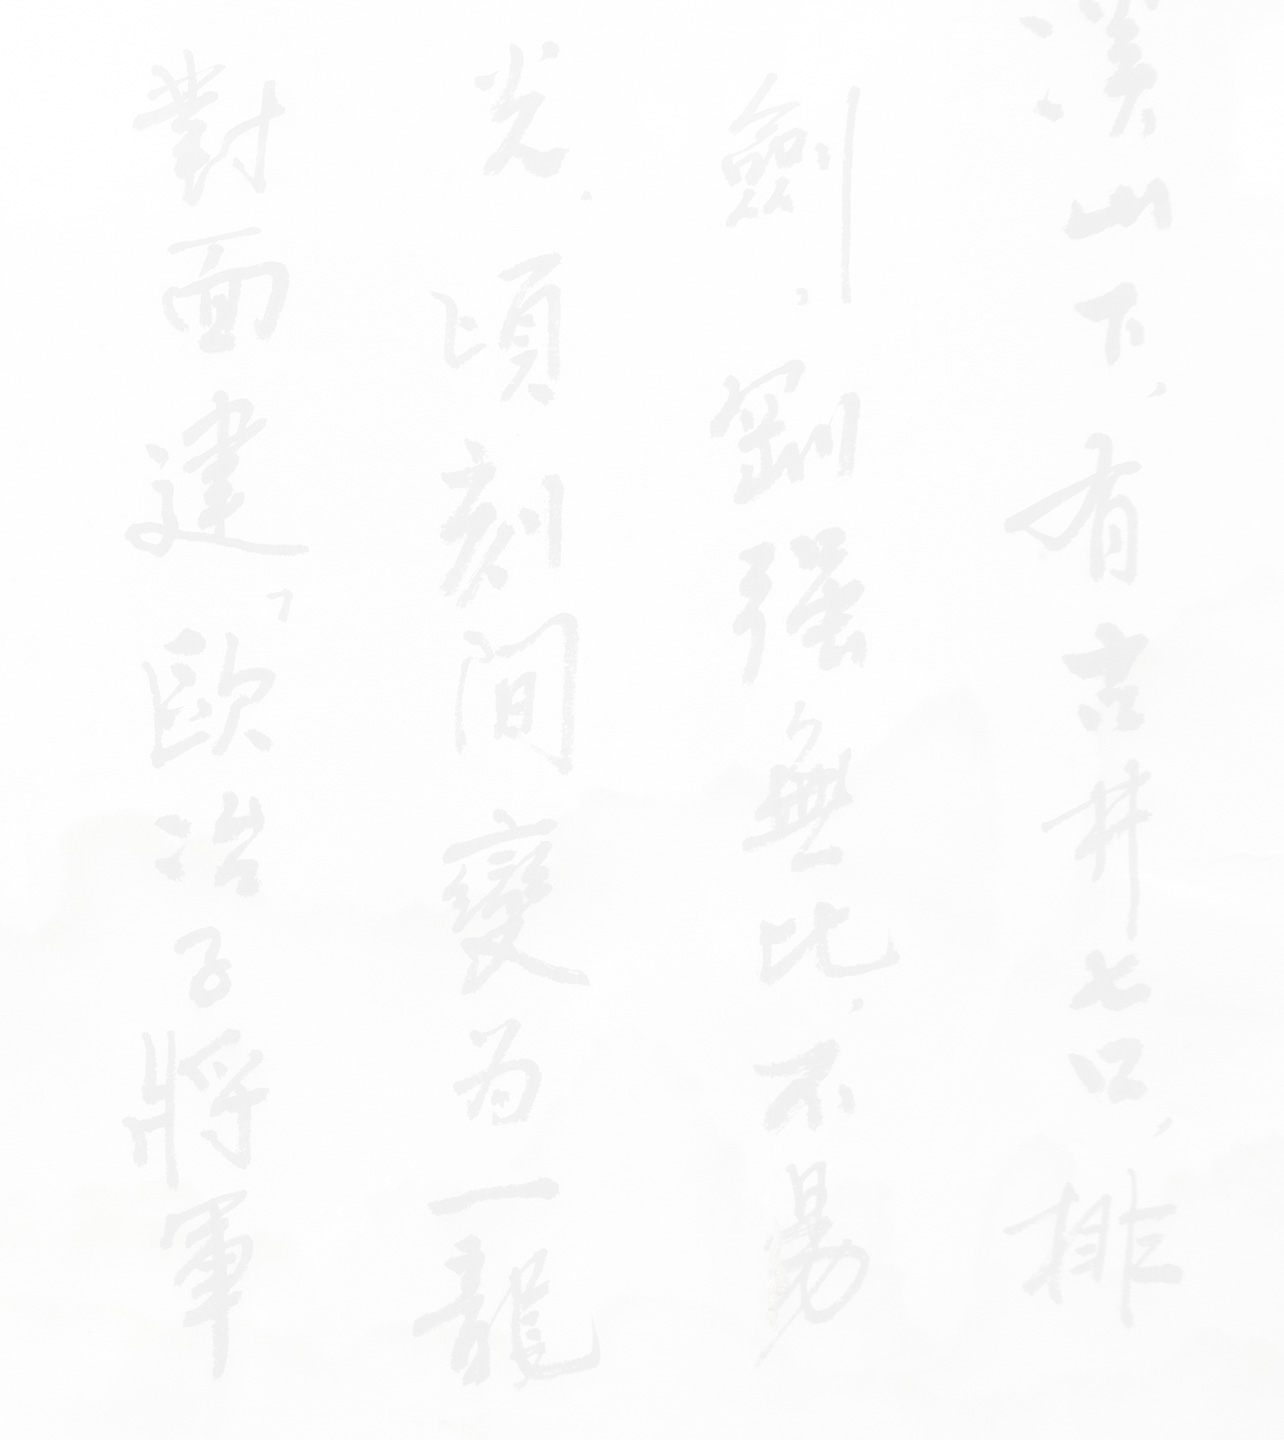 溪山下，有古井七口，排
劍，剛强無比，不易
光，頃刻間變为一龍
對面建，歐冶子將軍